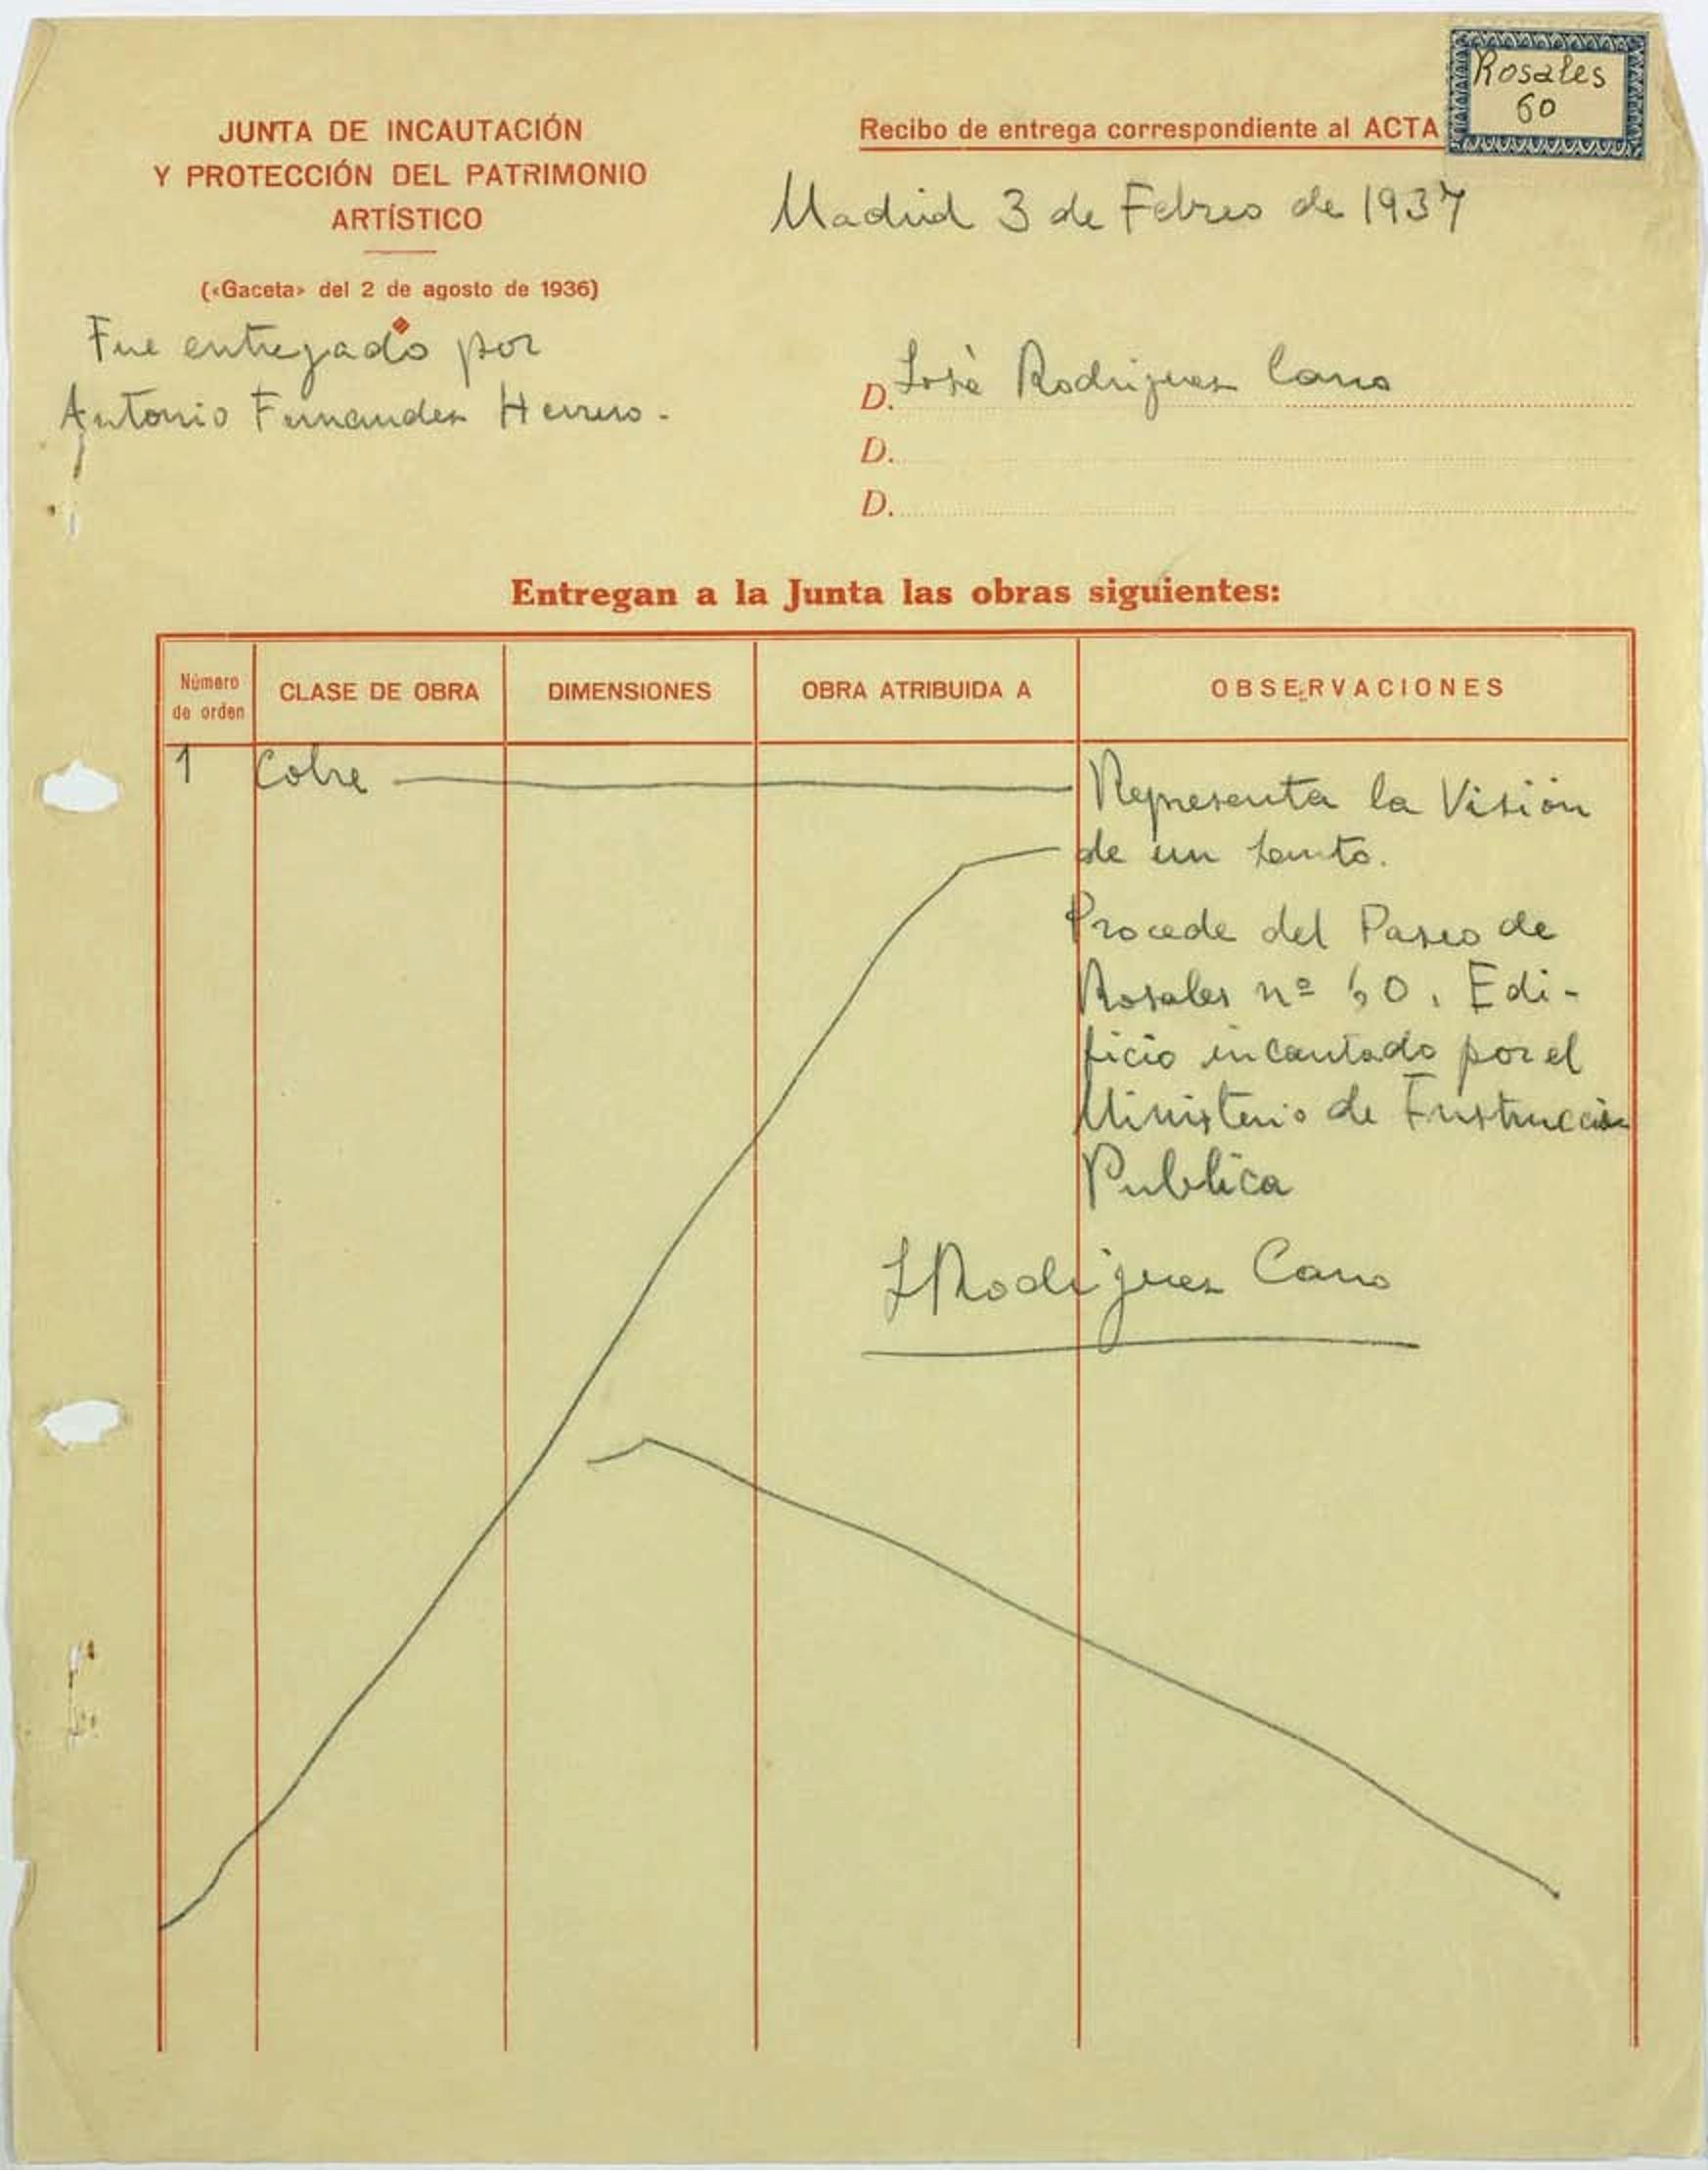 JUNTA DE INCAUTACIÓN
Y PROTECCIÓN DEL PATRIMONIO
ARTÍSTICO
(«Gaceta» del 2 de agosto de 1936)
Fue entregado por
Antonio Fernandez Herrero.
Recibo de entrega correspondiente al ACTA
Rosales
60
Madrid 3 de Febrero de 1937
D. José Rodriguez Cano
D.
D.
Entregan a la Junta las obras siguientes:
Número de orden CLASE DE OBRA DIMENSIONES OBRA ATRIBUIDA A OBSERVACIONES
1 Cobre Representa la Visión
de un santo.
Procede del Paseo de
Rosales nº 60. Edi-
ficio incautado por el
Ministerio de Instrucción
Publica
J Rodriguez Cano